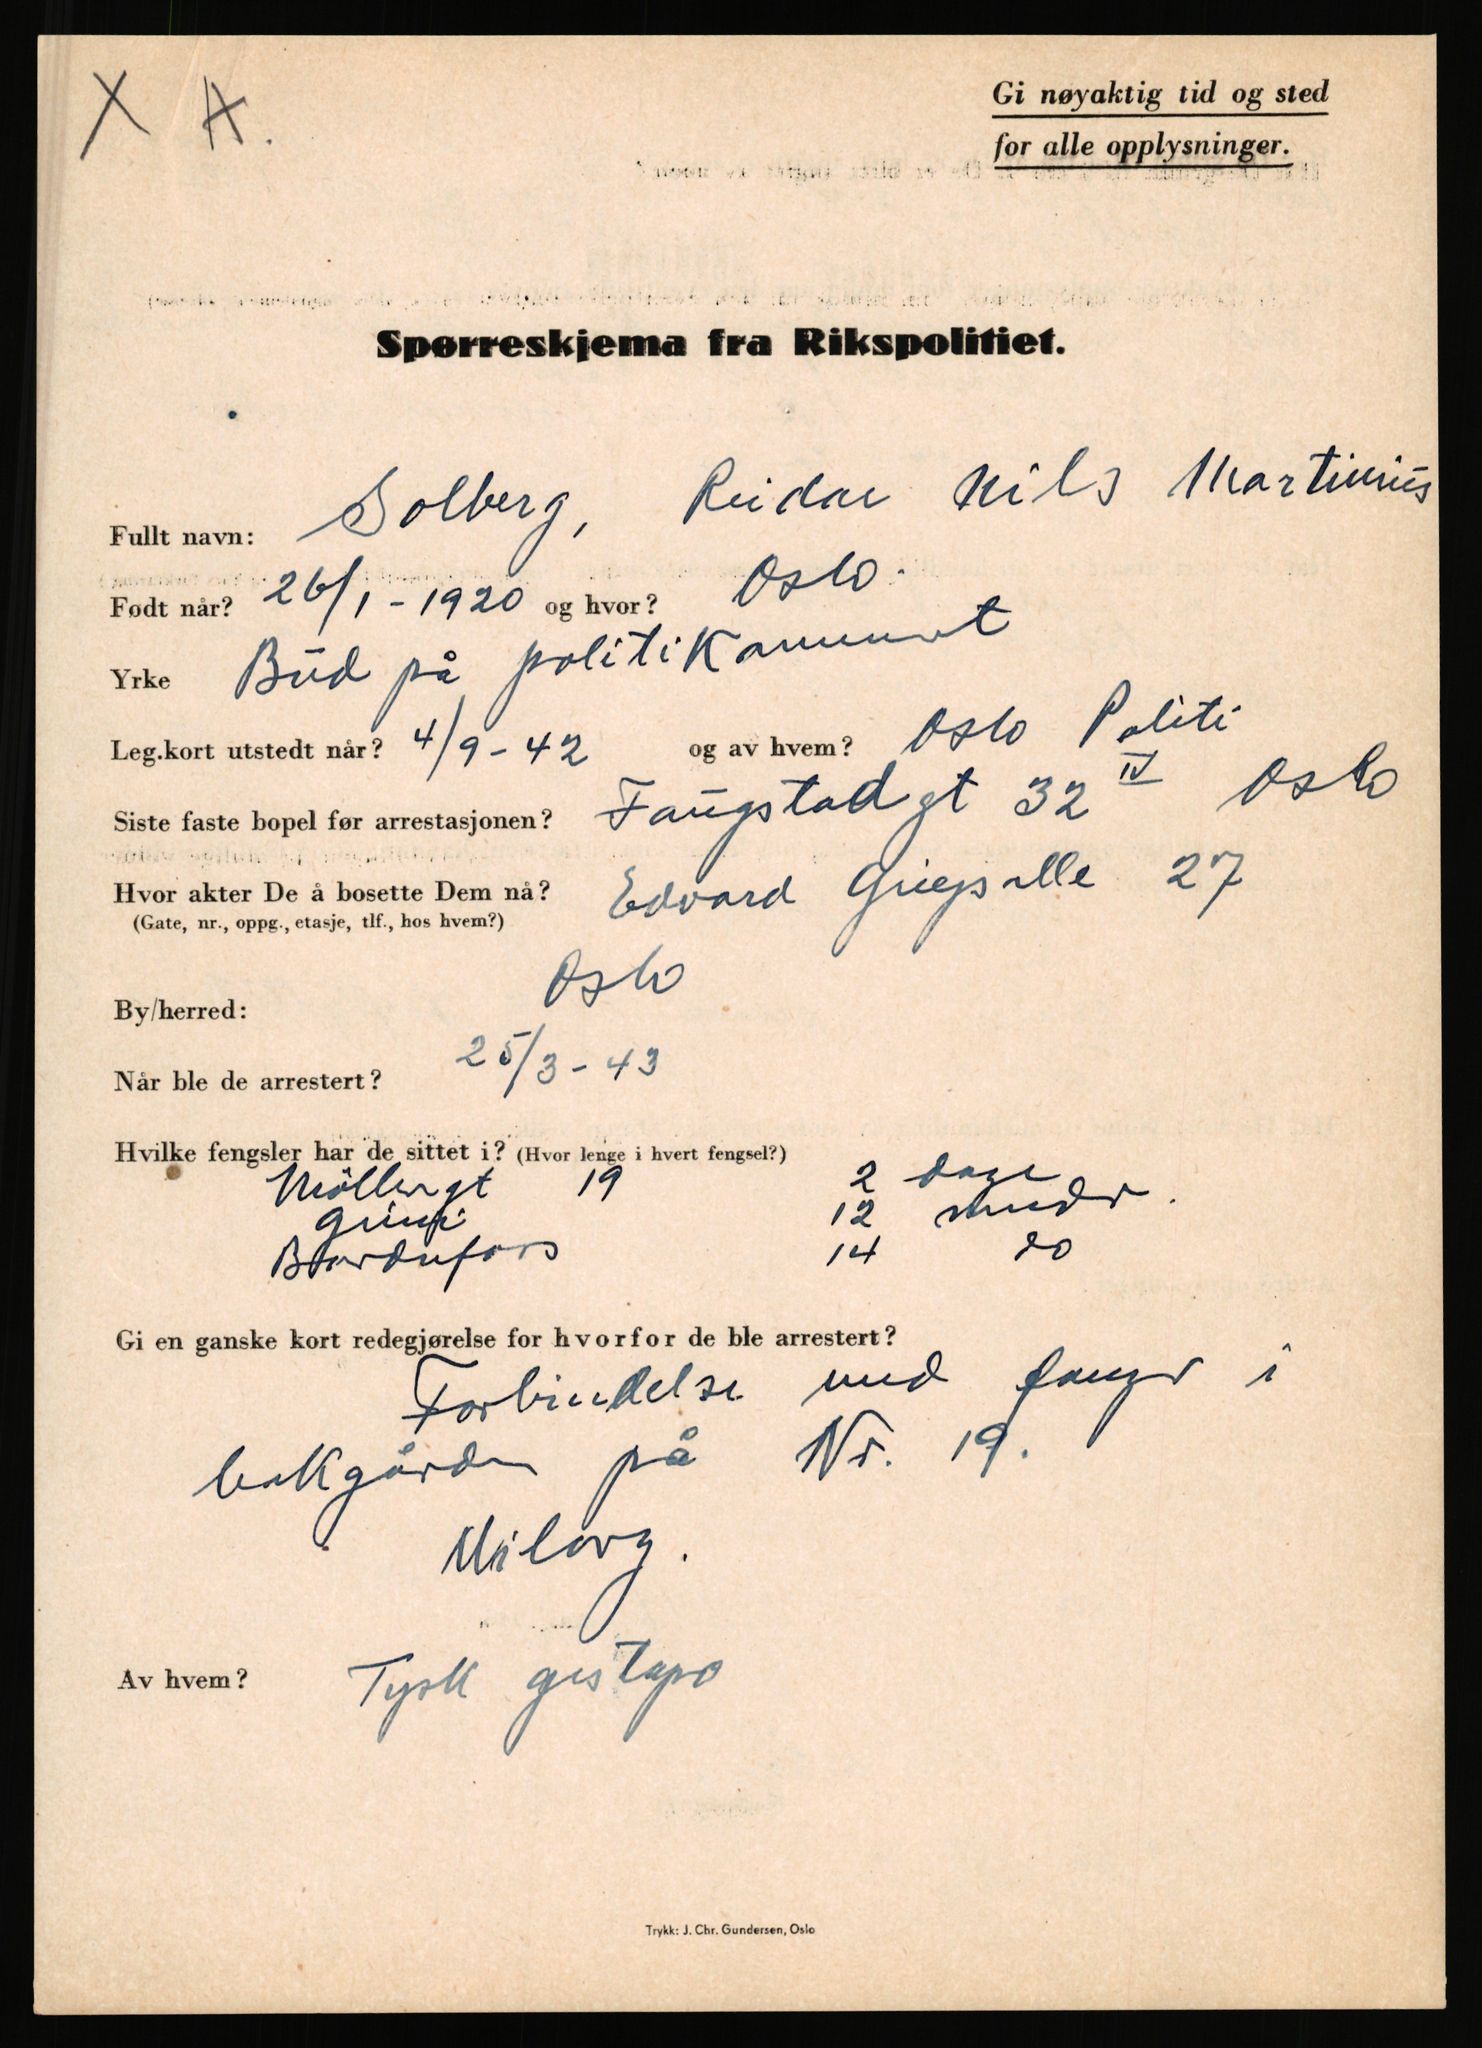 X A.
Gi nøyaktig tid og sted
for alle opplysninger.
Spørreskjema fra Rikspolitiet.
Fullt navn: Solberg, Reidar Nils Martinius
Født når? 26/1-1920 og hvor? Oslo.
Yrke Bud på politikammeret
Leg.kort utstedt når? 4/9-42 og av hvem? Oslo Politi
Siste faste bopel før arrestasjonen? Faugstadgt 32 IV Oslo
Hvor akter De å bosette Dem nå? Edvard Griegs alle 27
(Gate, nr., oppg., etasje, tlf., hos hvem?)
Oslo
By/herred:
Når ble de arrestert? 25/3-43
Hvilke fengsler har de sittet i? (Hvor lenge i hvert fengsel?)
Möllergt 19 2 dage
Grini 12 mndr.
Bardufoss 14 do
Gi en ganske kort redegjørelse for hvorfor de ble arrestert?
Forbindelse med fanger i
bakgården på Nr. 19.
Milorg.
Av hvem? Tysk gestapo
Trykk: J. Chr. Gundersen, Oslo